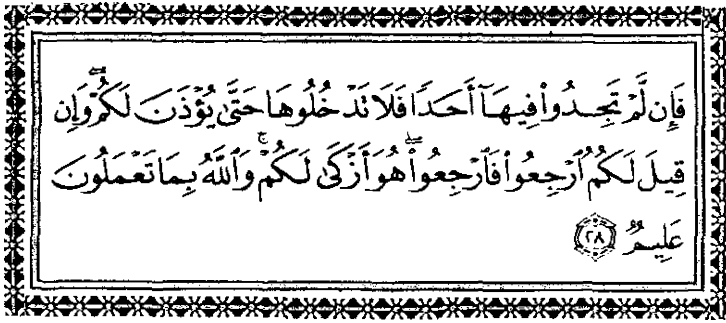 فَإِن لَّمْ تَجِدُوا۟ فِيهَآ أَحَدًا فَلَا تَدْخُلُوهَا حَتَّىٰ يُؤْذَنَ لَكُمْ ۖ وَإِن
قِيلَ لَكُمُ ٱرْجِعُوا۟ فَٱرْجِعُوا۟ ۖ هُوَ أَزْكَىٰ لَكُمْ ۚ وَٱللَّهُ بِمَا تَعْمَلُونَ
عَلِيمٌ ٢٨